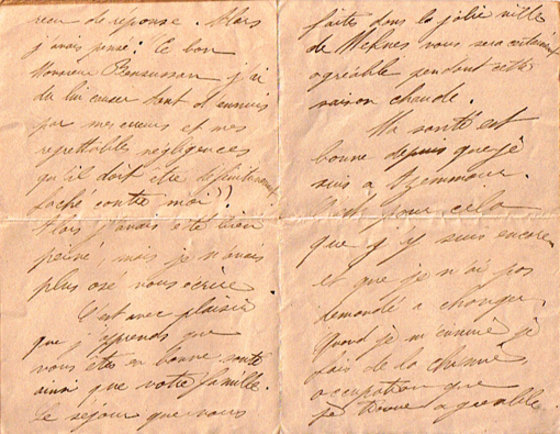 reçu de réponse. Alors
j'avais pensé: Ce bon
Monsieur Bensussan j'ai
dû lui causer tant d'ennuis
par mes erreurs et mes
regrettables négligences
qu'il doit être définitivement
faché contre moi!!
Alors j'avais été bien
peiné, mais je n'avais
plus osé vous écrire
C'est avec plaisir
que j'apprends que
vous êtes en bonne santé
ainsi que votre famille.
Le séjour que vous
faites dans la jolie ville
de Meknes vous sera certainement
agréable pendant cette
saison chaude.
Ma santé est
bonne depuis que je
suis à Azemmour.
C'est pour cela
que j'y suis encore
et que je n'ai pas
demandé à changer.
Quand je m'ennuie je
fais de la
occupation que
je trouve agréable